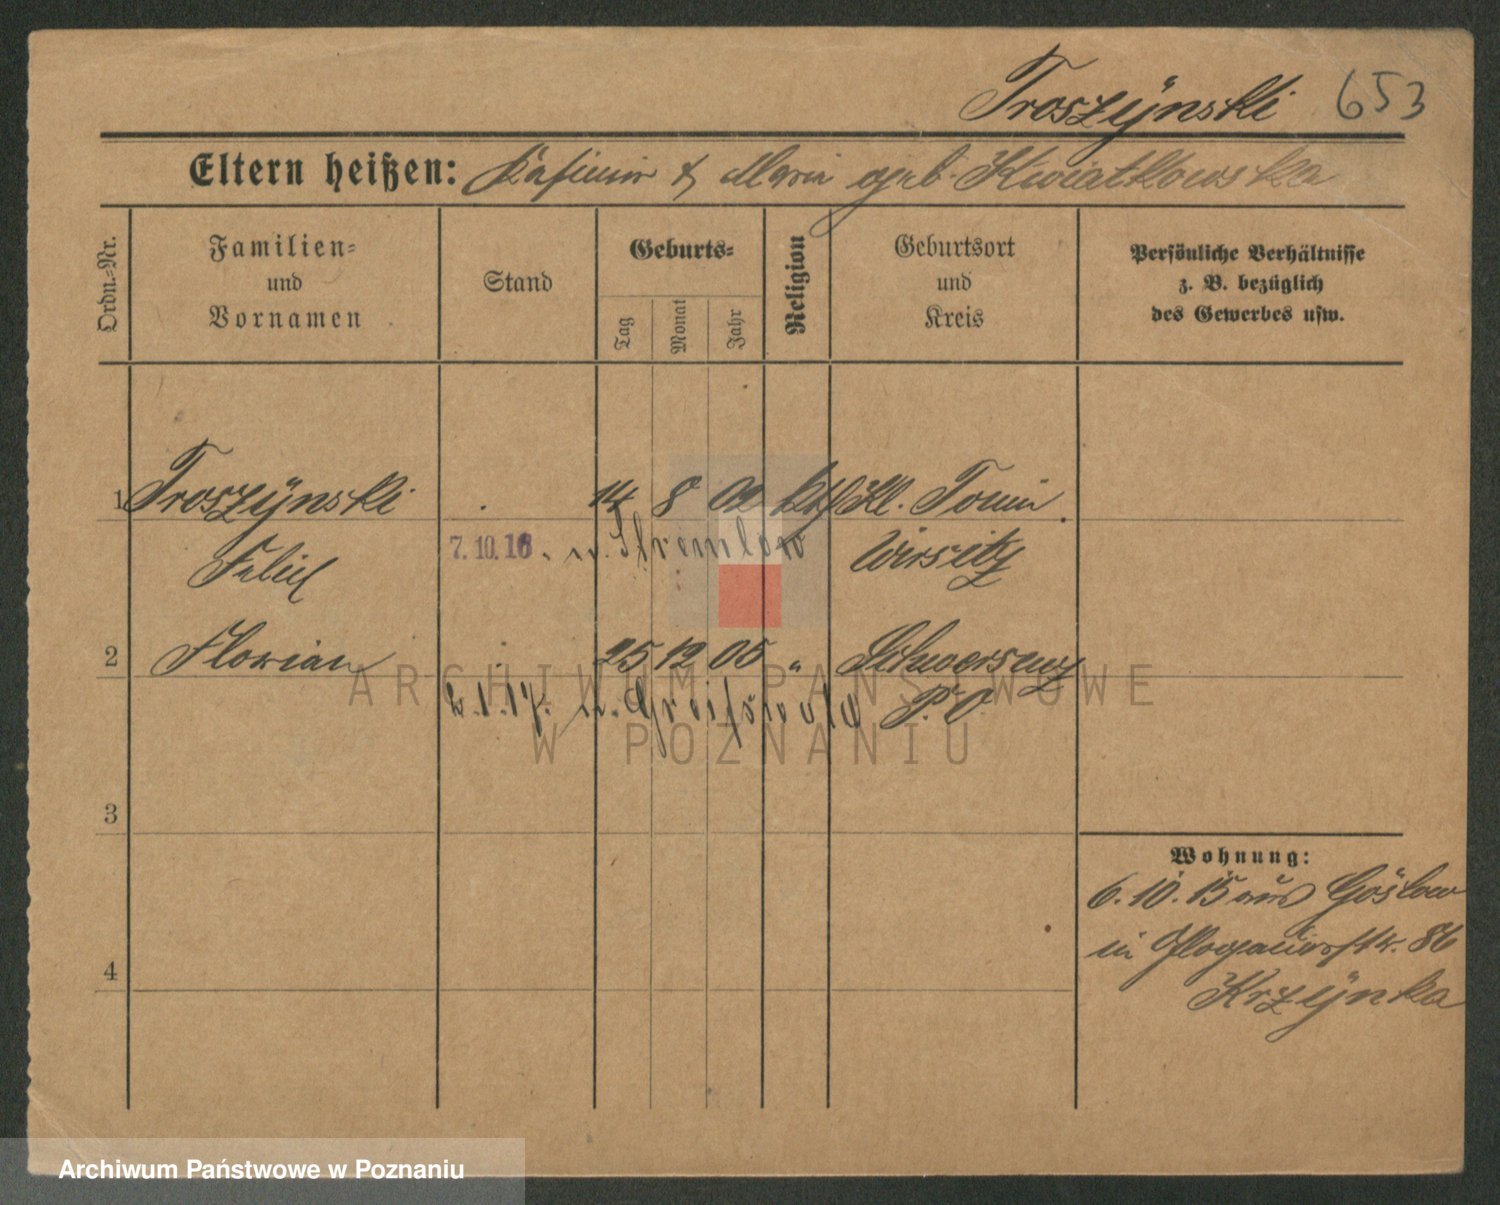 Troszÿnski 653
Eltern heißen: Kasimir & Maria geb. Kwiatkowska
Ordn.-Nr.
Familien-
und
Vornamen
Stand
Geburts-
Tag
Monat
Jahr
Religion
Geburtsort
und
Kreis
Persönliche Verhältnisse
z. B. bezüglich
des Gewerbes usw.
1 Troszÿnski 14 8 02 kth Kl. Tonin
Felix 7.10.16. n. Stremlow Wirsitz
2 Florian 25 12 05 " Schwersenz
2.1.17. n. Greifswald P. O
3
4
Wohnung:
6.10.15 aus Göslow
in Glogauerstr. 86
Krzÿnka
ARCHIWUM PAŃSTWOWE
W POZNANIU
Archiwum Państwowe w Poznaniu